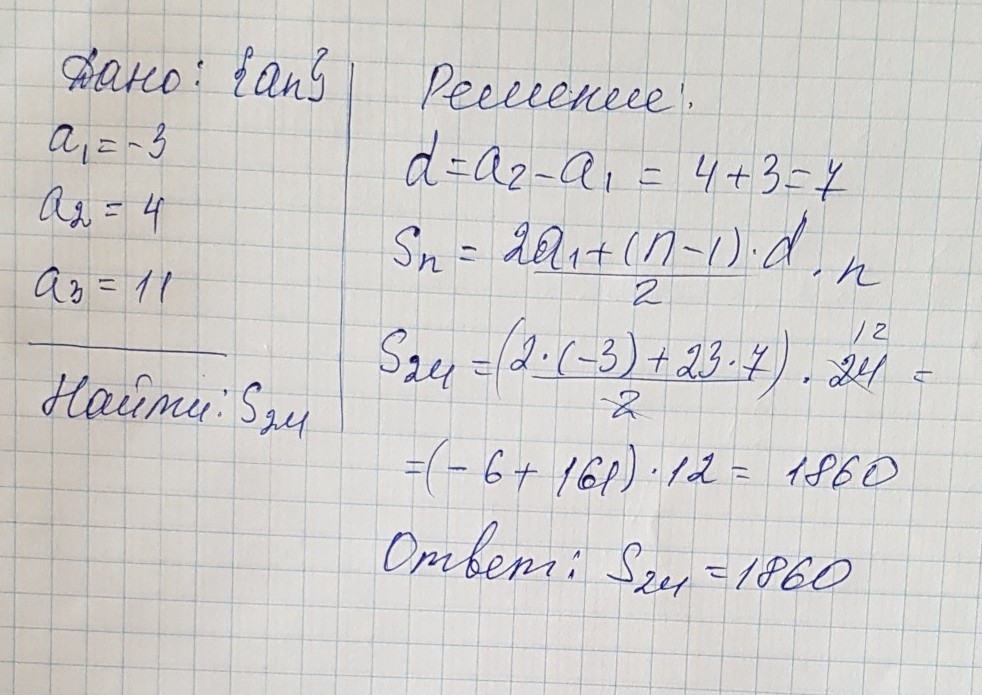 Дано: {an}
a₁ = -3
a₂ = 4
a₃ = 11
Найти: S₂₄
Решение:
d = a₂ - a₁ = 4 + 3 = 7
Sn = 2a₁ + (n - 1) · d / 2 · n
S₂₄ = (2 · (-3) + 23 · 7) / 2 · 24 12 =
= (-6 + 161) · 12 = 1860
Ответ: S₂₄ = 1860